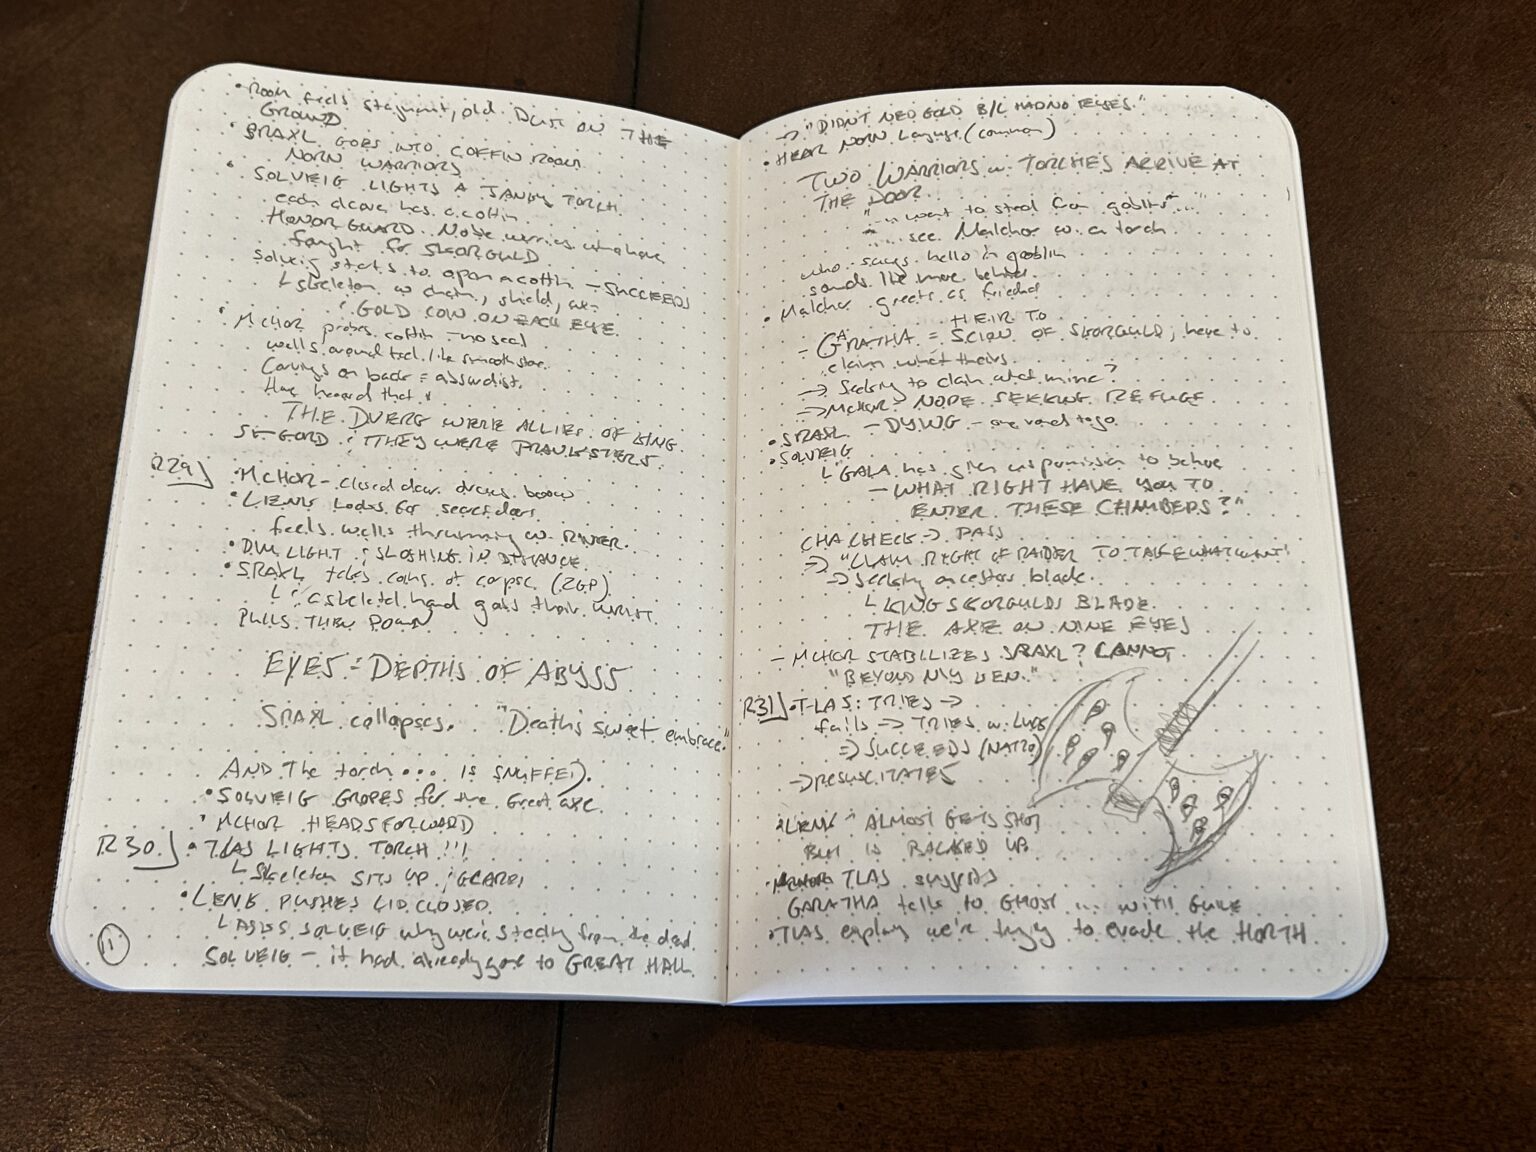 • Room feels stagnant, old. DUST ON THE
GROUND
• SRAXL GOES INTO COFFIN ROOM
NORN WARRIORS
• SOLVEIG LIGHTS A JANKY TORCH.
each alcove has a coffin.
HONOR GUARD. Noble warriors who have
fought for SKORGULD
Solveig starts to open a coffin — SUCCEEDS
↳ skeleton w chain, shield, axe
GOLD COIN ON EACH EYE.
• MCHOR probes coffin — no seal
walls around feel like smooth stone.
Carvings on back = absurdist.
Has heard that
THE DVERG WERE ALLIES OF KING
; THEY WERE PRANKSTERS.
R29
• MCHOR — closed door
• LIENK Looks for secret doors
feels walls thrumming w
• DIM LIGHT ; SLOSHING IN DISTANCE.
• SRAXL takes coins of corpse (2GP)
↳ a skeletal hand grabs their WRIST
PULLS THEM DOWN
EYES = DEPTHS OF ABYSS
SRAXL collapses. "Death's sweet embrace."
AND The torch... IS SNUFFED.
• SOLVEIG GROPES for the Great axe
• MCHOR HEADS FORWARD
R30
• TLAS LIGHTS TORCH!!!
↳ Skeleton SITS UP
• LENK PUSHES LID CLOSED
↳ ASKS SOLVEIG why we're stealing from the dead.
SOLVEIG — it had already gone to GREAT HALL
11
→ "DIDN'T NEED GOLD B/C HAD NO EYES."
• HEAR NORN Language (common)
TWO WARRIORS w TORCHES ARRIVE AT
THE DOOR
"... want to steal from goblins..."
"... see Malchor w a torch
who says hello in goblin
sounds like more behind
• Malchor greets as friend
HEIR TO
- GARATHA = SCION OF SKORGULD; here to
claim what theirs.
→ Seeking to claim what mine?
→ MCHOR - NOPE SEEKING REFUGE.
• SRAXL — DYING — one round to go
• SOLVEIG
↳ "GALA has given us permission to be here
— WHAT RIGHT HAVE YOU TO
ENTER THESE CHAMBERS?"
CHA CHECK → PASS
→ "CLAIM RIGHT OF RAIDER TO TAKE WHAT I WANT"
→ Seeking ancestors blade.
↳ KING SKORGULDS BLADE
THE AXE OF NINE EYES
— MCHOR STABILIZES SRAXL? CANNOT
"BEYOND MY KEN."
R31
• TLAS: TRIES →
fails → TRIES w Luck
→ SUCCEEDS (NAT20)
→ RESUSCITATES
• LENK — ALMOST GETS SHOT
BUT IS BACKED UP.
• TLAS suggests
GARATHA talks to GHOST ... WITH GUILE
• TLAS explains we're trying to evade the HORTH